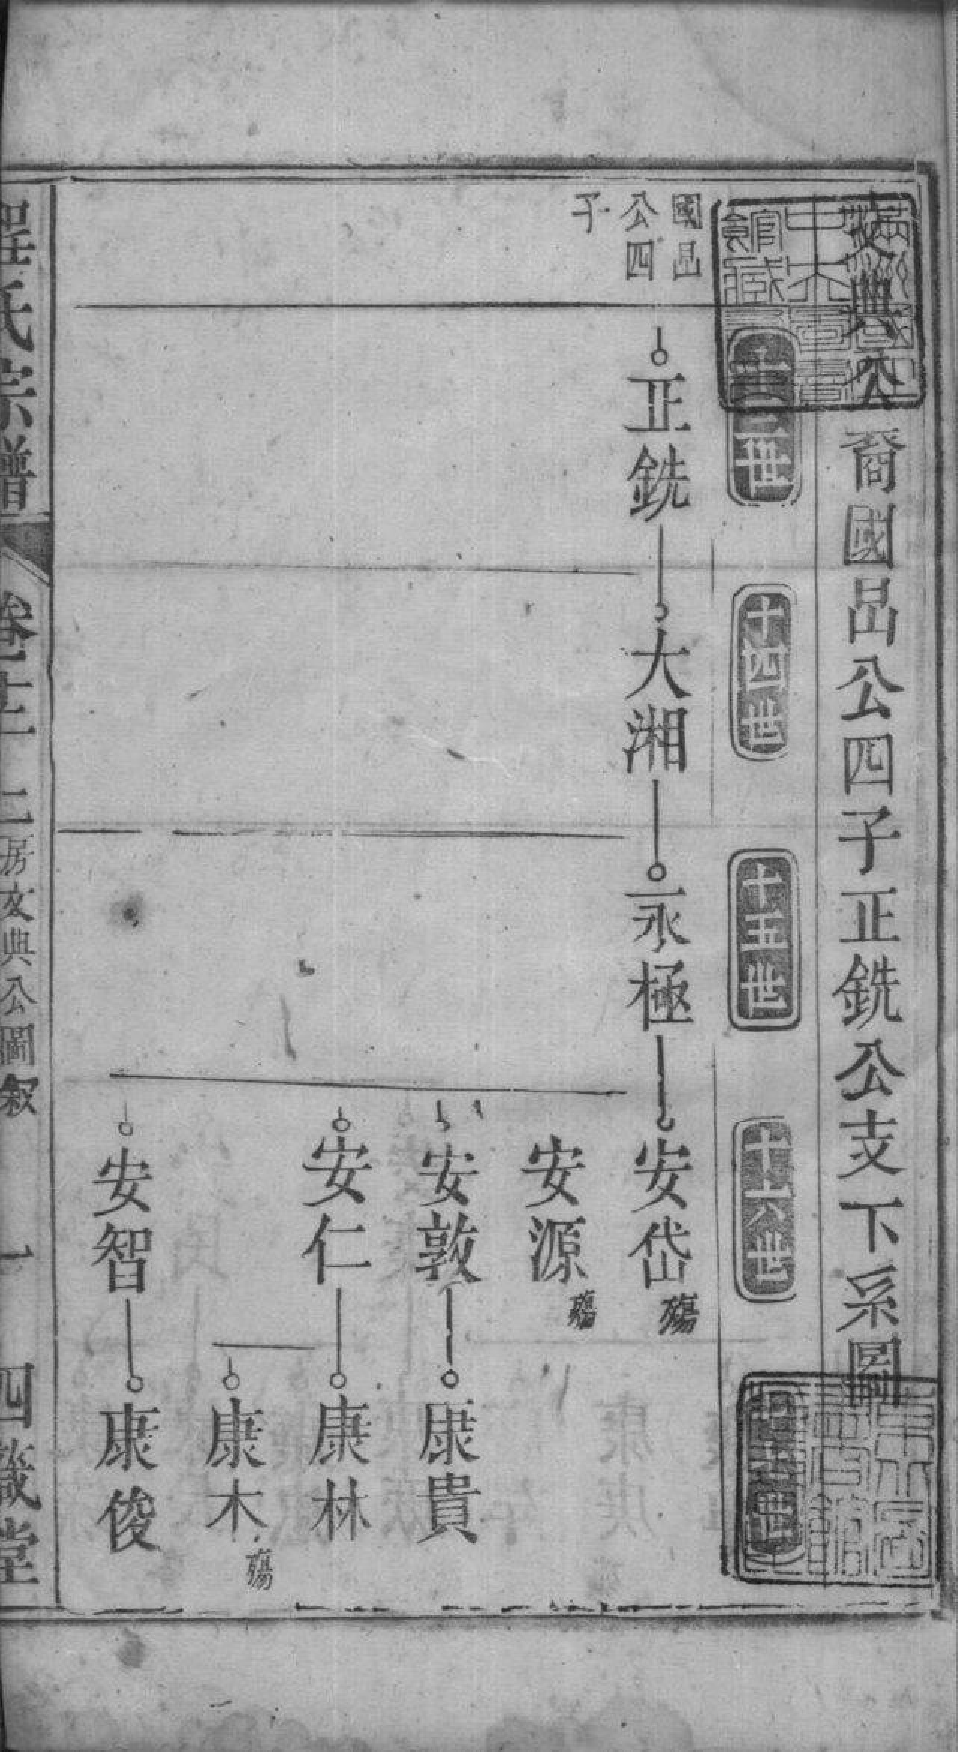 文典公裔國品公四子正銑公支下系圖
十三世
十四世
十五世
十六世
十七世
國品
公四
子
正銑
大湘
永極
安岱 殤
安源 殤
安敦
康貴
安仁
康林
康木 殤
安智
康俊
程氏宗譜 卷十二 二房文典公圖敘 一 四箴堂